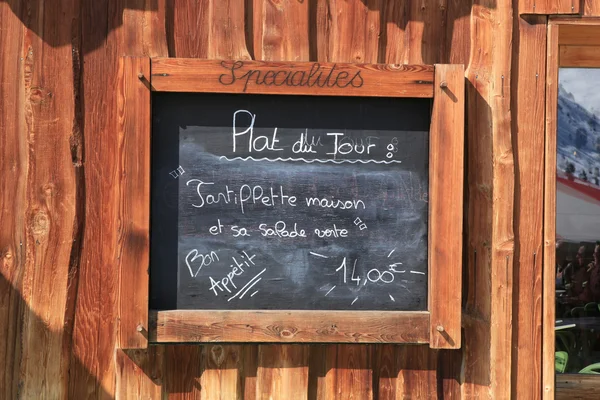 Specialités
Plat du Jour :
Tartiflette maison
et sa salade verte
Bon
Appétit
14,00€